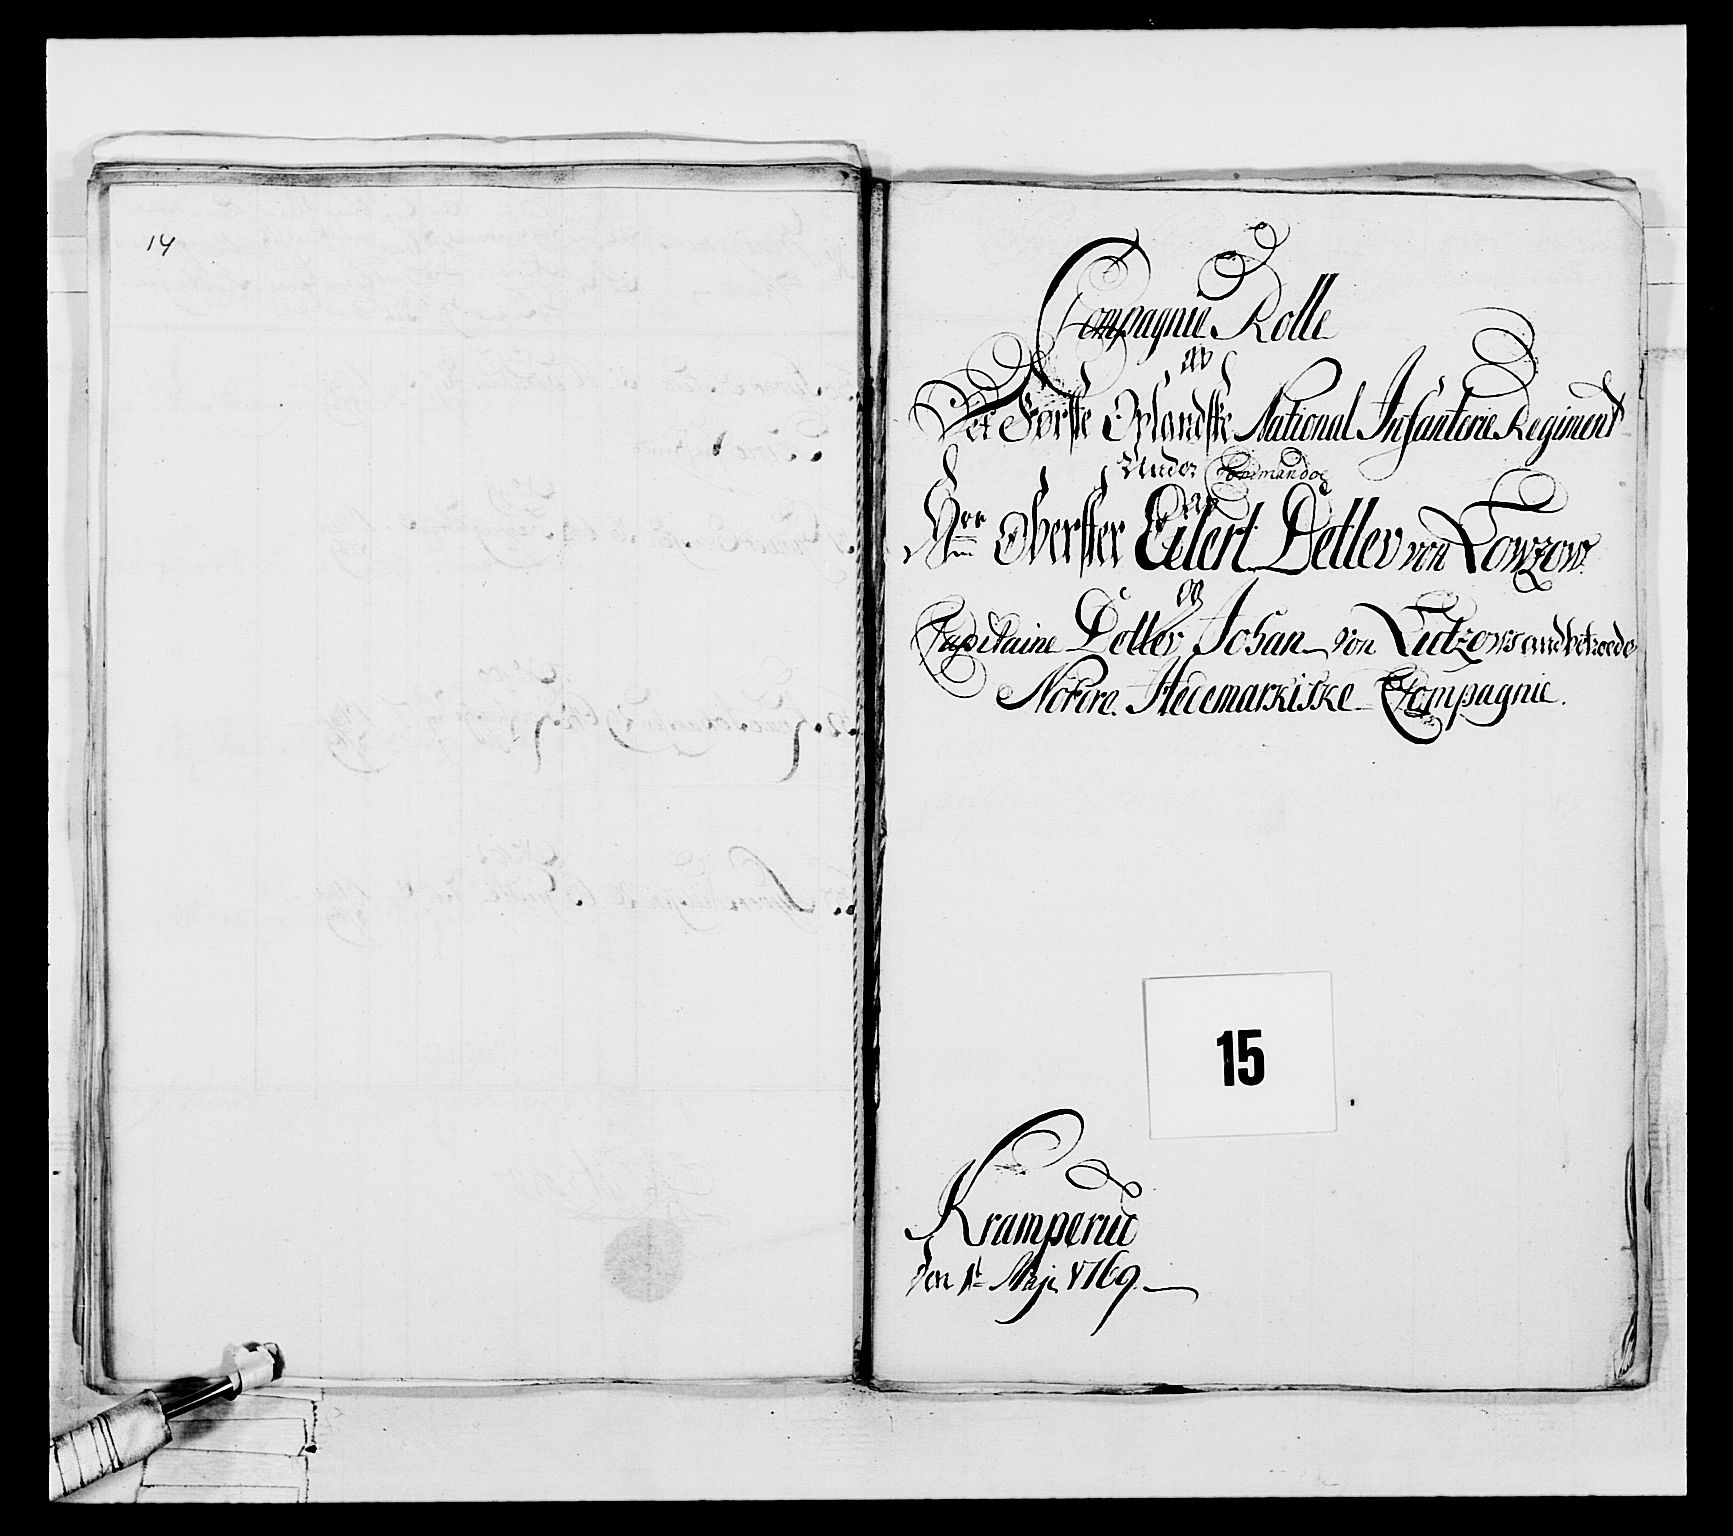 14
Compagnie Rolle
av
Det Første Oplandske National Infanterie Regiment
Under Commando
av
Hrr Oberster Eilert Detlev von Lowzow
og
Capitaine Detlev Johan von Lutzows anbetroede
Nordre Hedemarkiske Compagnie.
15
Kramperud
den 1t Maji 1769.